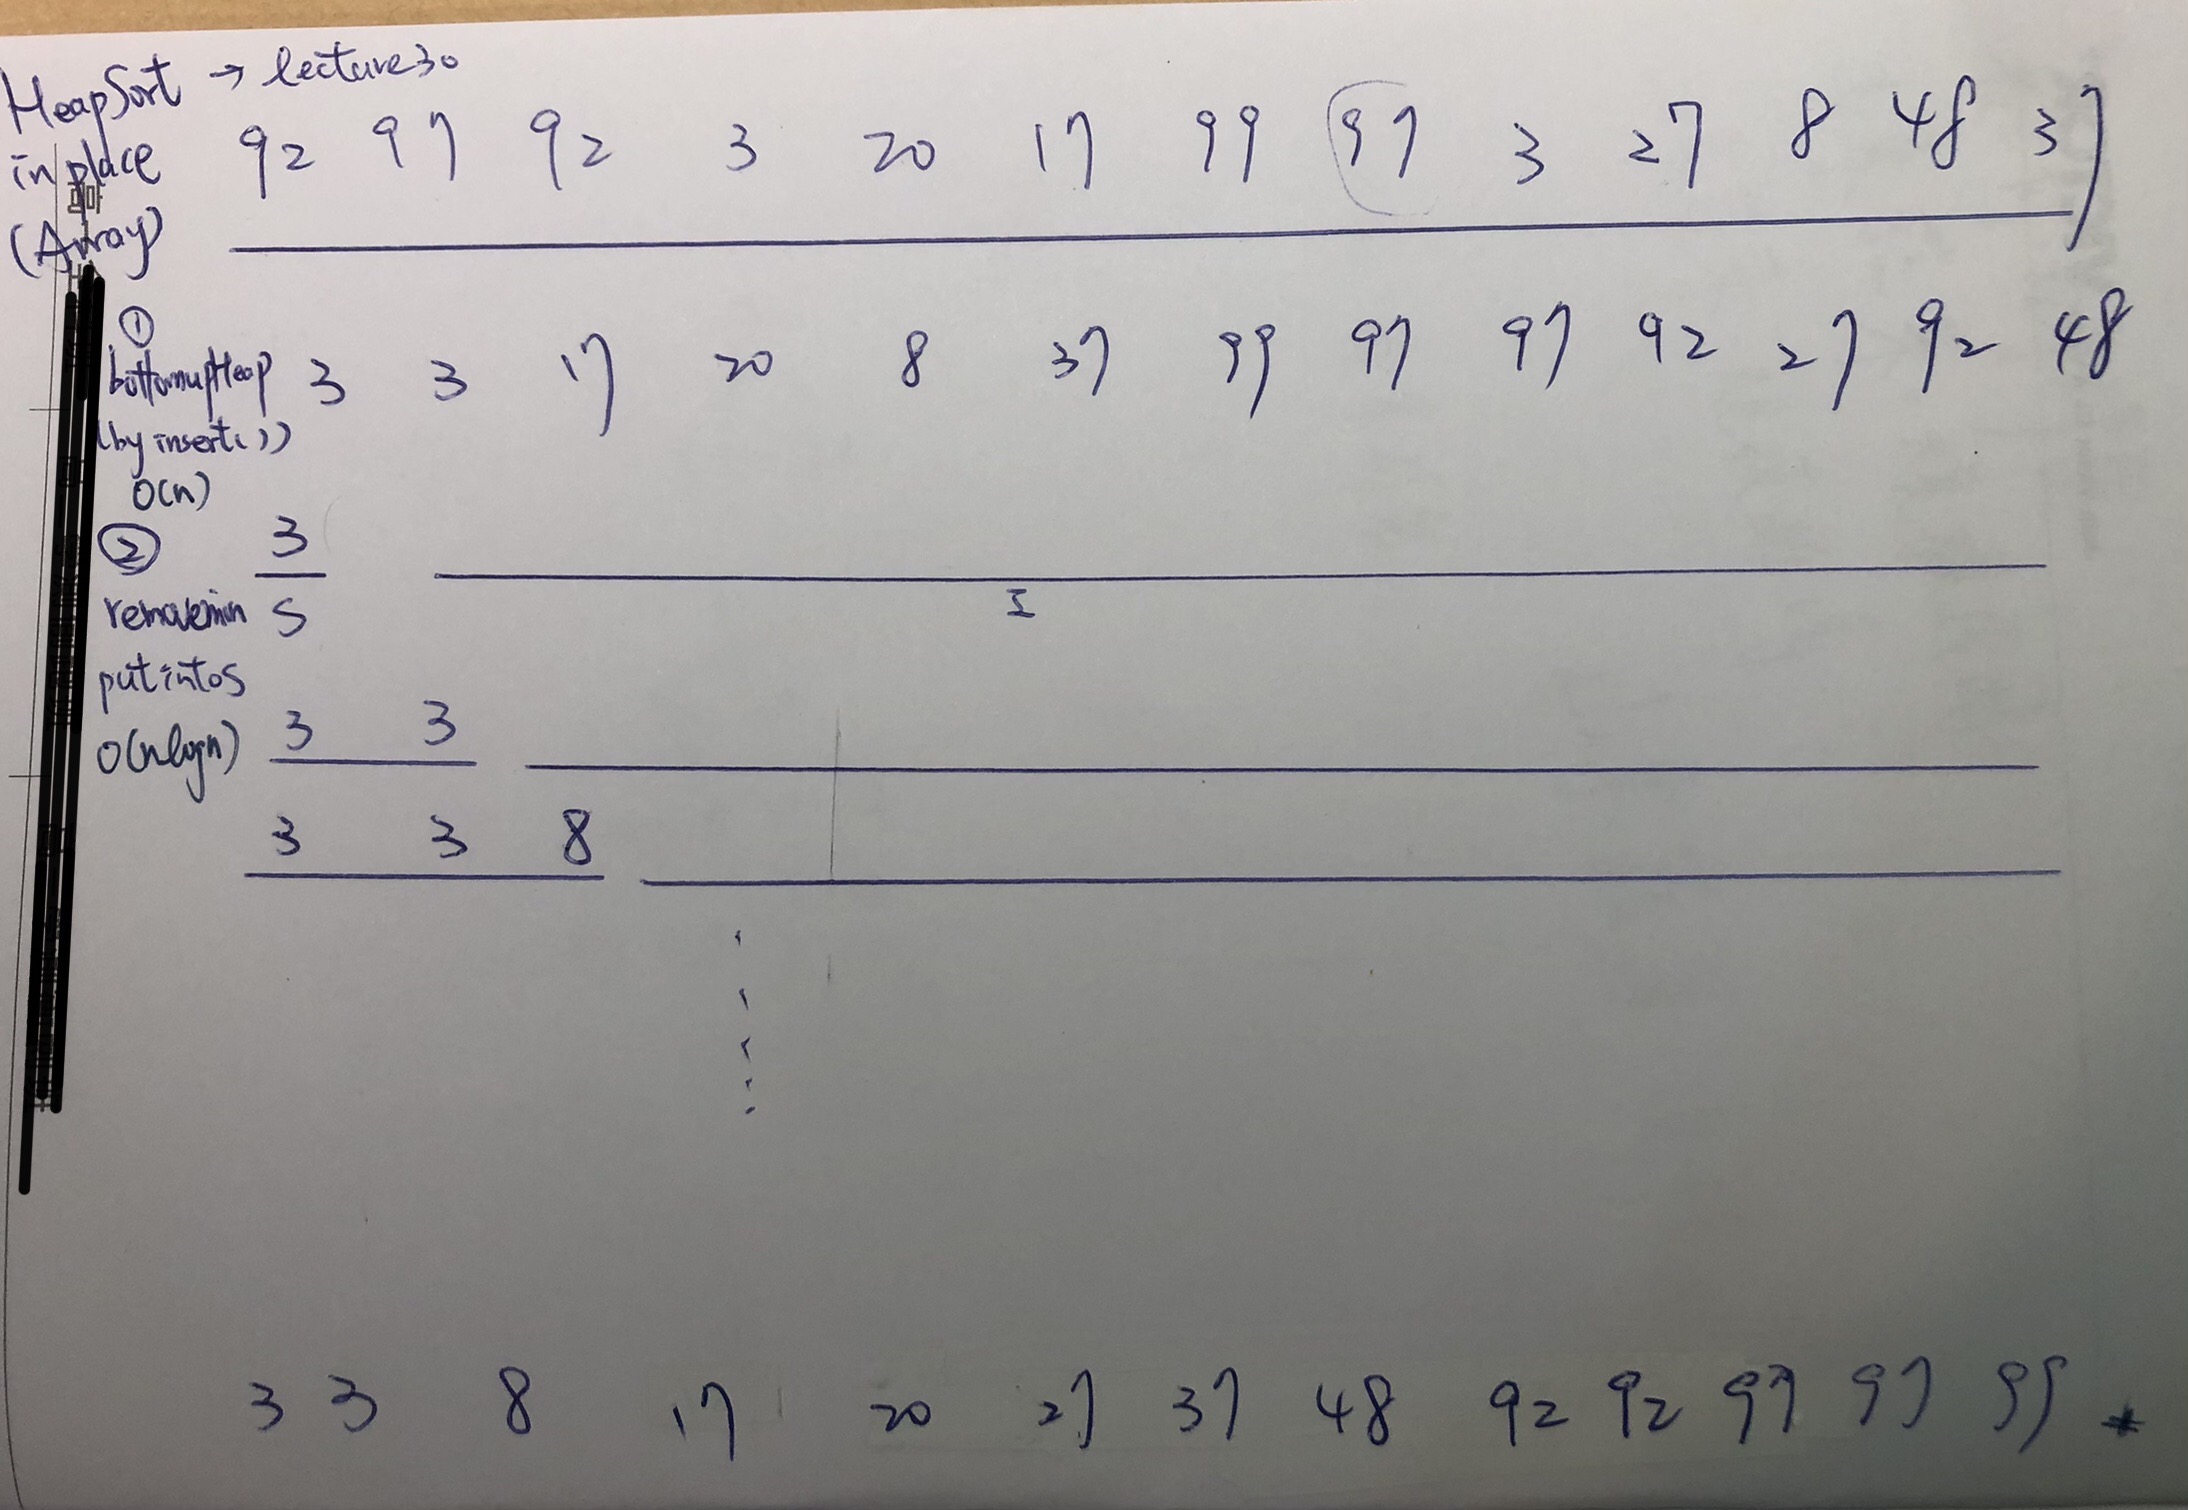 HeapSort → lecture30
in place
(Array)
92 97 92 3 20 17 99 97 3 27 8 48 37
①
bottomupHeap
(by insert())
O(n)
3 3 17 20 8 37 99 97 97 92 27 92 48
②
removemin
put into S
O(nlogn)
3
S I
3 3
3 3 8
3 3 8 17 20 27 37 48 92 92 97 97 99 *